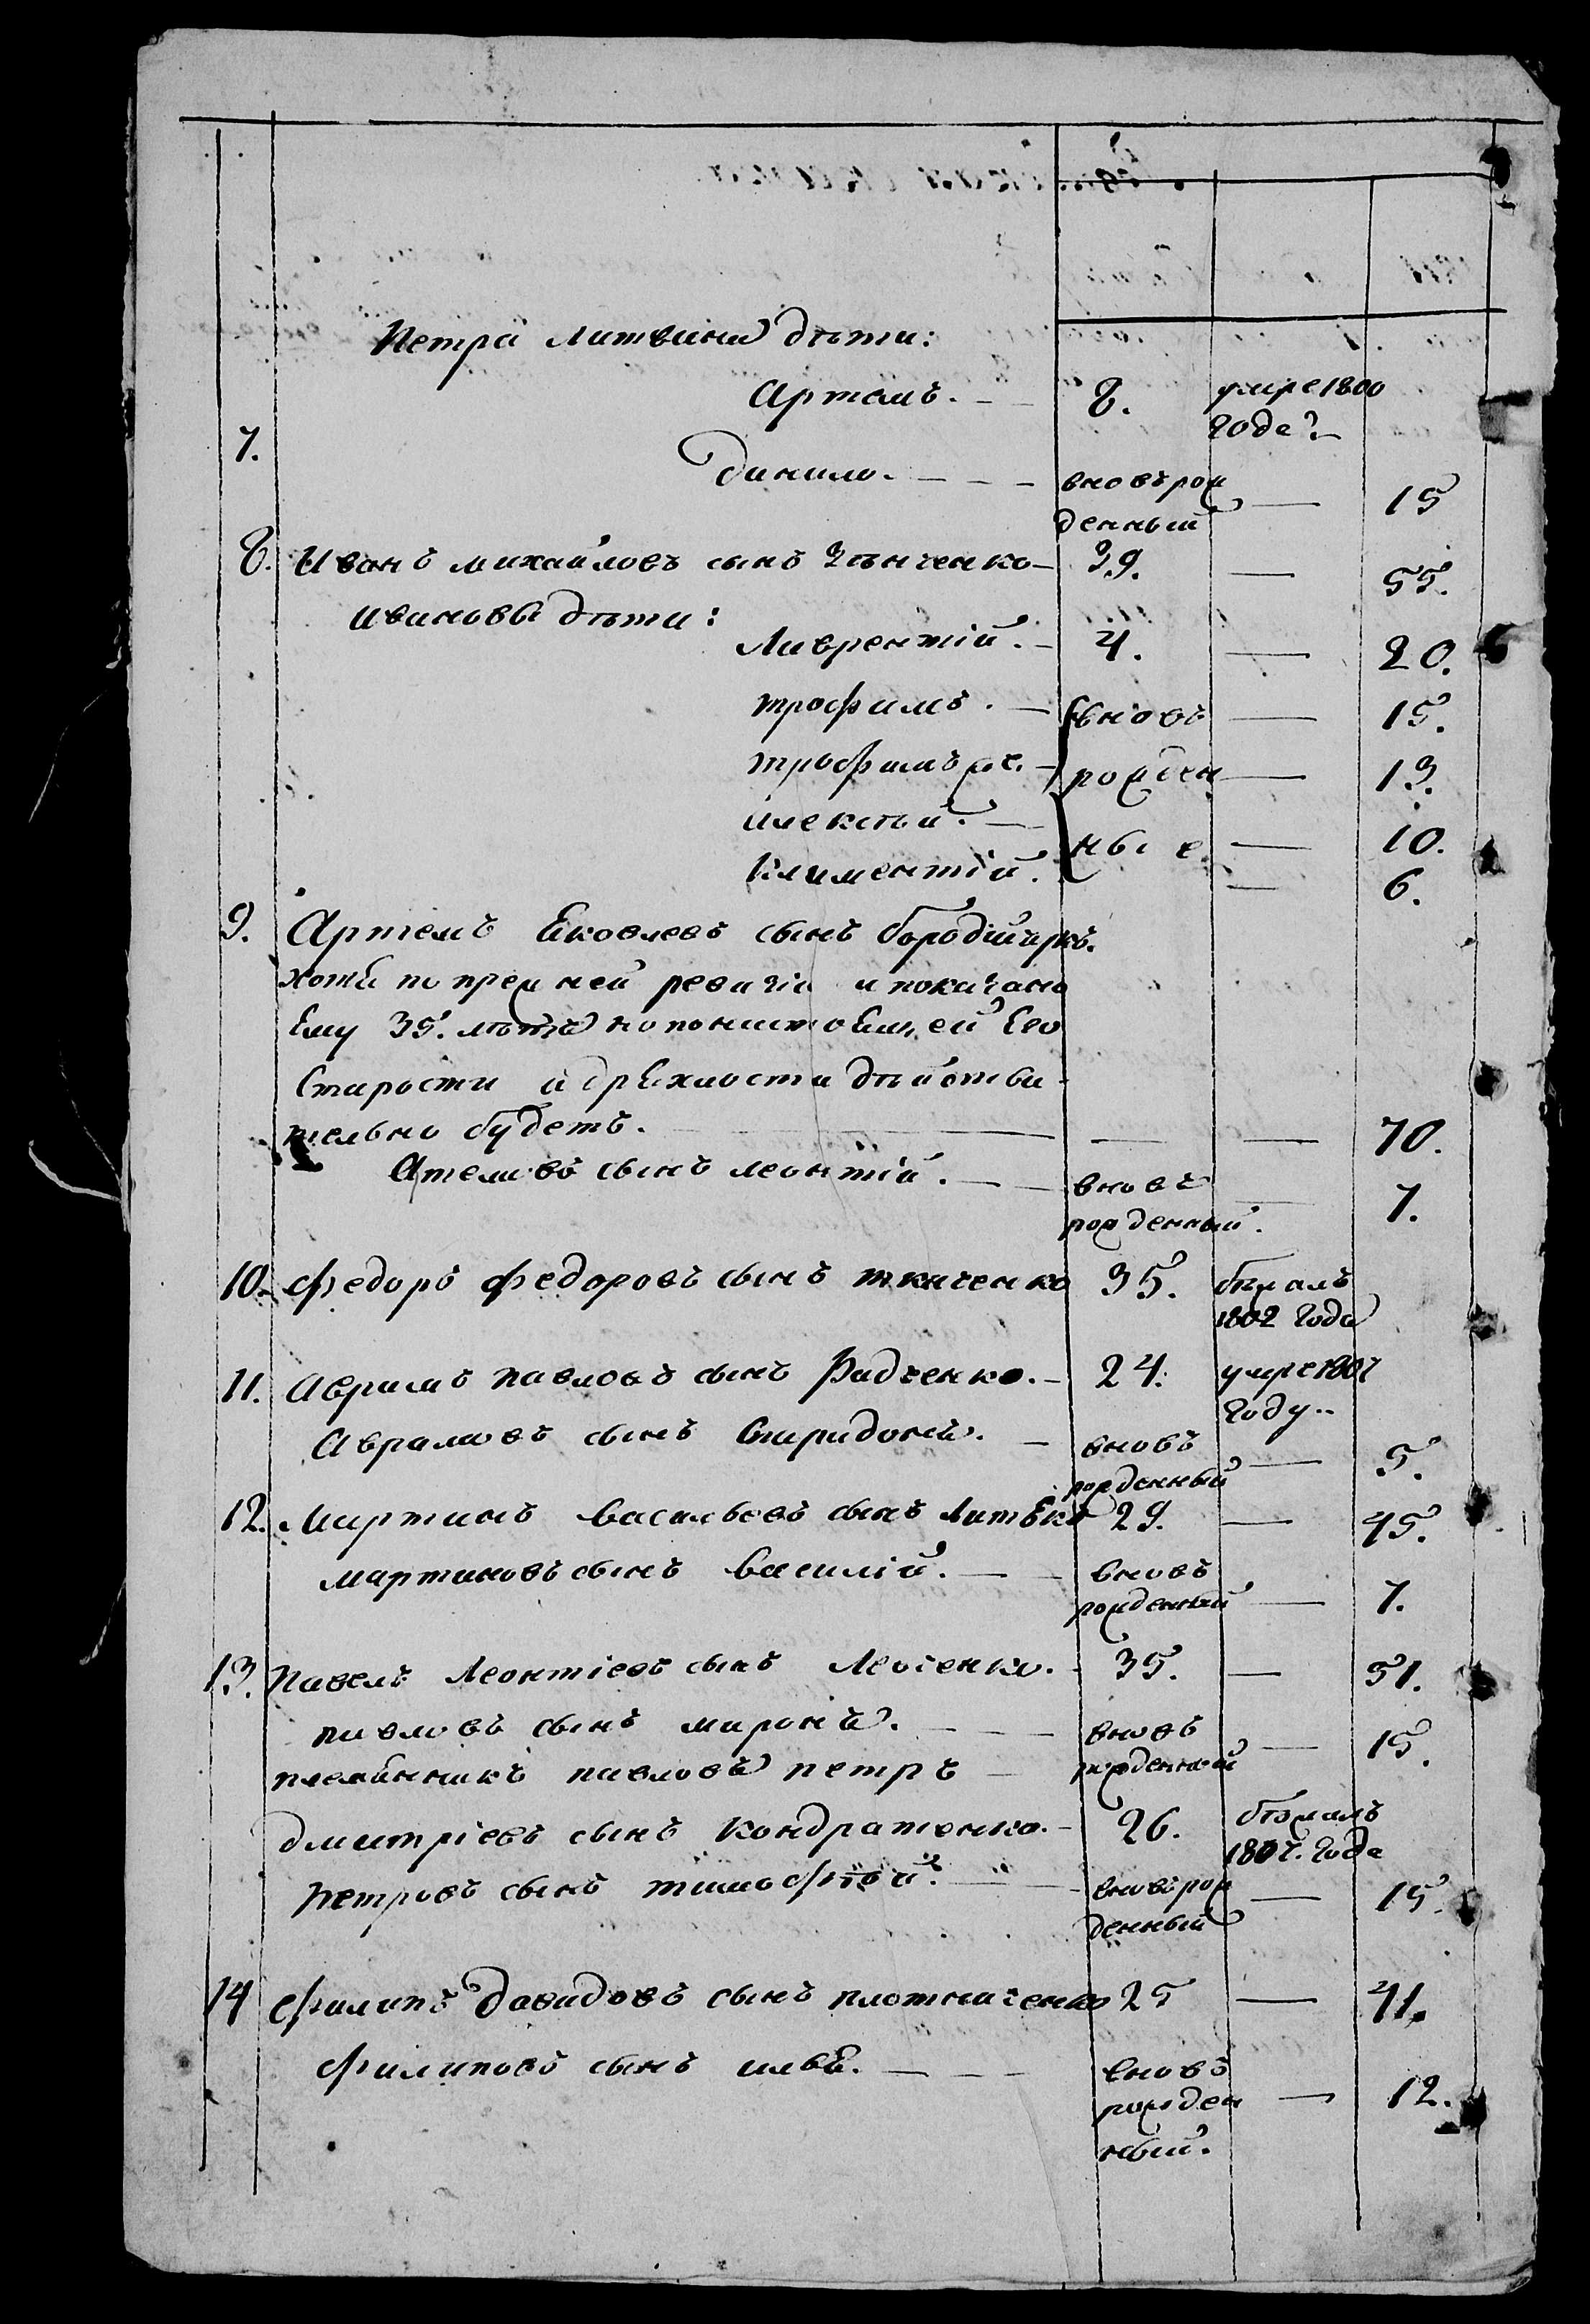 Петра Литвина дѣти:
Артемъ. — 8. умре 1800
года
7.
Данило. — — — вновь рож
денный — 15
8. Иванъ михайловъ сынъ Зѣнченко — 39. — 55.
ивановы дѣти:
Лаврентій. — 4. — 20.
трофимъ. — вновь — 15.
трофимъ же. — рожден — 13.
алексѣй. — ные — 10.
Климентій. — 6.
9. Артемъ Яковлевъ сынъ
хотя по прежней ревизіи и показано
Ему 35. лѣтъ но по настоящей Его
Старости и дряхлости дѣйстви-
тельно будетъ. — — — 70.
Атемовъ сынъ леонтій. — — вновь
рожденный. — 7.
10. федоръ федоровъ сынъ ткаченко 35. бѣжалъ
1802 года
11. Аврамъ павловъ сынъ Радченко. — 24. умре 1807
году..
Аврамовъ сынъ Спиридонъ. — вновь
рожденный — 5.
12. Мартинъ васильевъ сынъ 29. — 45.
мартиновъ сынъ василій. — — вновь
рожденный — 7.
13. Павелъ Леонтіевъ сынъ 35. — 51.
павловъ сынъ миронъ. — — — вновь
рожденный — 15.
племянникъ павловъ петръ —
дмитріевъ сынъ кондратенко. — 26. бѣжалъ
1807. года
петровъ сынъ тимофѣй. — вновь рож
денный — 15.
14 филипъ Давидовъ сынъ плотниченко 25 — 41.
филиповъ сынъ илья. — — — вновь
рожден — 12.
ный.